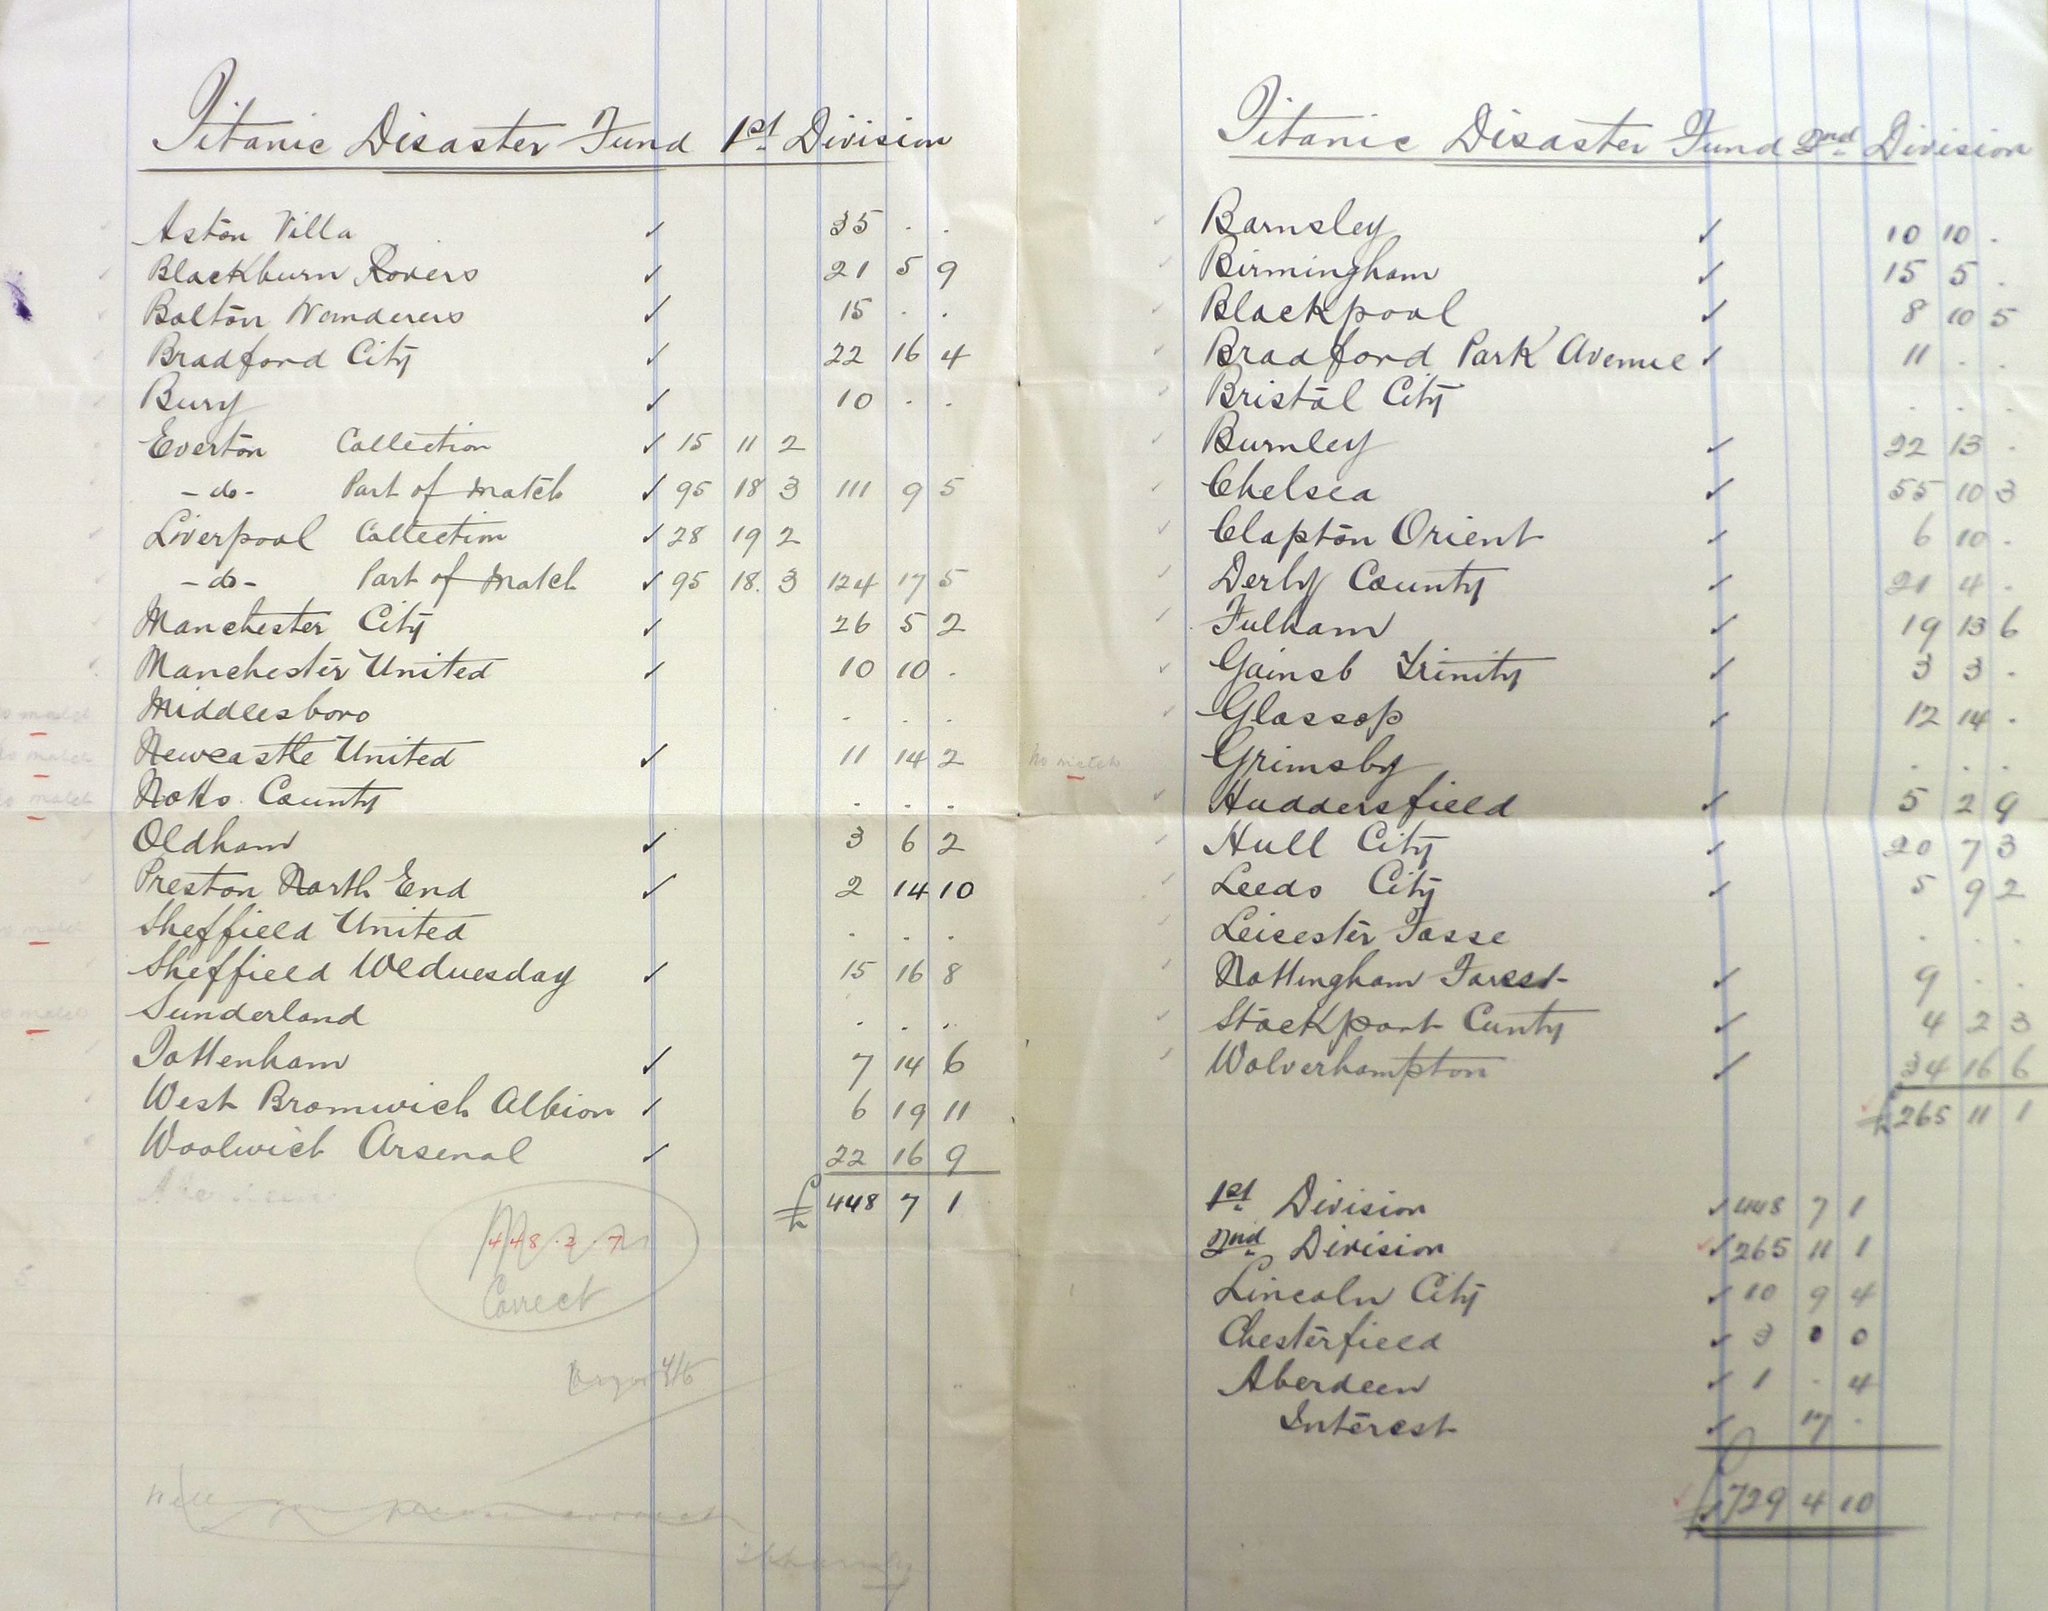 Titanic Disaster Fund 1st Division
Aston Villa ✓ 35 . .
Blackburn Rovers ✓ 21 5 9
Bolton Wanderers ✓ 15 . .
Bradford City ✓ 22 16 4
Bury ✓ 10 . .
Everton Collection ✓ 15 11 2
- do - Part of Match ✓ 95 18 3 111 9 5
Liverpool Collection ✓ 28 19 2
- do - Part of Match ✓ 95 18 3 124 17 5
Manchester City ✓ 26 5 2
Manchester United ✓ 10 10 .
no match Middlesboro . . .
no match Newcastle United ✓ 11 14 2
no match Notts. County . . .
Oldham ✓ 3 6 2
Preston North End ✓ 2 14 10
no match Sheffield United . . .
Sheffield Wednesday ✓ 15 16 8
no match Sunderland . . .
Tottenham ✓ 7 14 6
West Bromwich Albion ✓ 6 19 11
Woolwich Arsenal ✓ 22 16 9
£ 448 7 1
448.7.7
Correct
Titanic Disaster Fund 2nd Division
Barnsley ✓ 10 10 .
Birmingham ✓ 15 5 .
Blackpool ✓ 8 10 5
Bradford Park Avenue ✓ 11 . .
Bristol City . . .
Burnley ✓ 22 13 .
Chelsea ✓ 55 10 3
Clapton Orient ✓ 6 10 .
Derby County ✓ 21 4 .
Fulham ✓ 19 13 6
Gainsb Trinity ✓ 3 3 .
Glossop ✓ 12 14 .
No match Grimsby . . .
Huddersfield ✓ 5 2 9
Hull City ✓ 20 7 3
Leeds City ✓ 5 9 2
Leicester Fosse . . .
Nottingham Forest ✓ 9 . .
Stockport Cunty ✓ 4 2 3
Wolverhampton ✓ 34 16 6
£ 265 11 1
1st Division ✓ 448 7 1
2nd Division ✓ 265 11 1
Lincoln City ✓ 10 9 4
Chesterfield ✓ 3 0 0
Aberdeen ✓ 1 . 4
Interest ✓ 17 .
£ 729 4 10